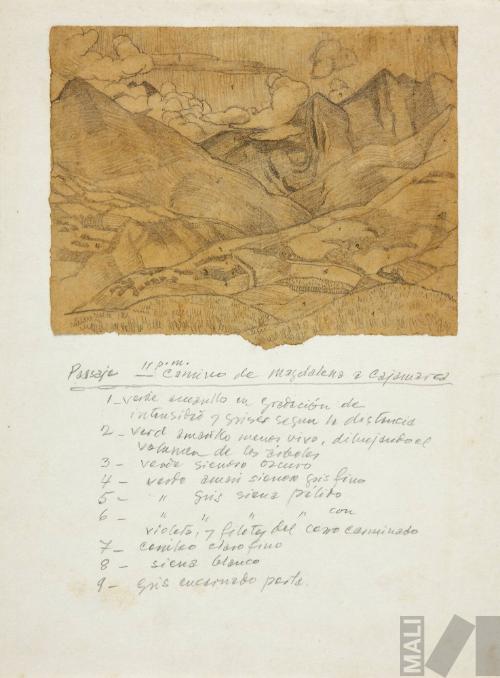 Paisaje 11 p.m. Camino de Magdalena a Cajamarca
1 - verde amarillo en gradación de
intensidad y grises segun la distancia
2 - verd amarillo menos vivo, dibujando el
volumen de los árboles
3 - verde siena oscuro
4 - verde amari siena gris fino
5 - " gris siena pálido
6 - " " " " con
violeta, y filetes del cerro carminado
7 - claro fino
8 - siena blanco
9 - gris encarnado
MALI